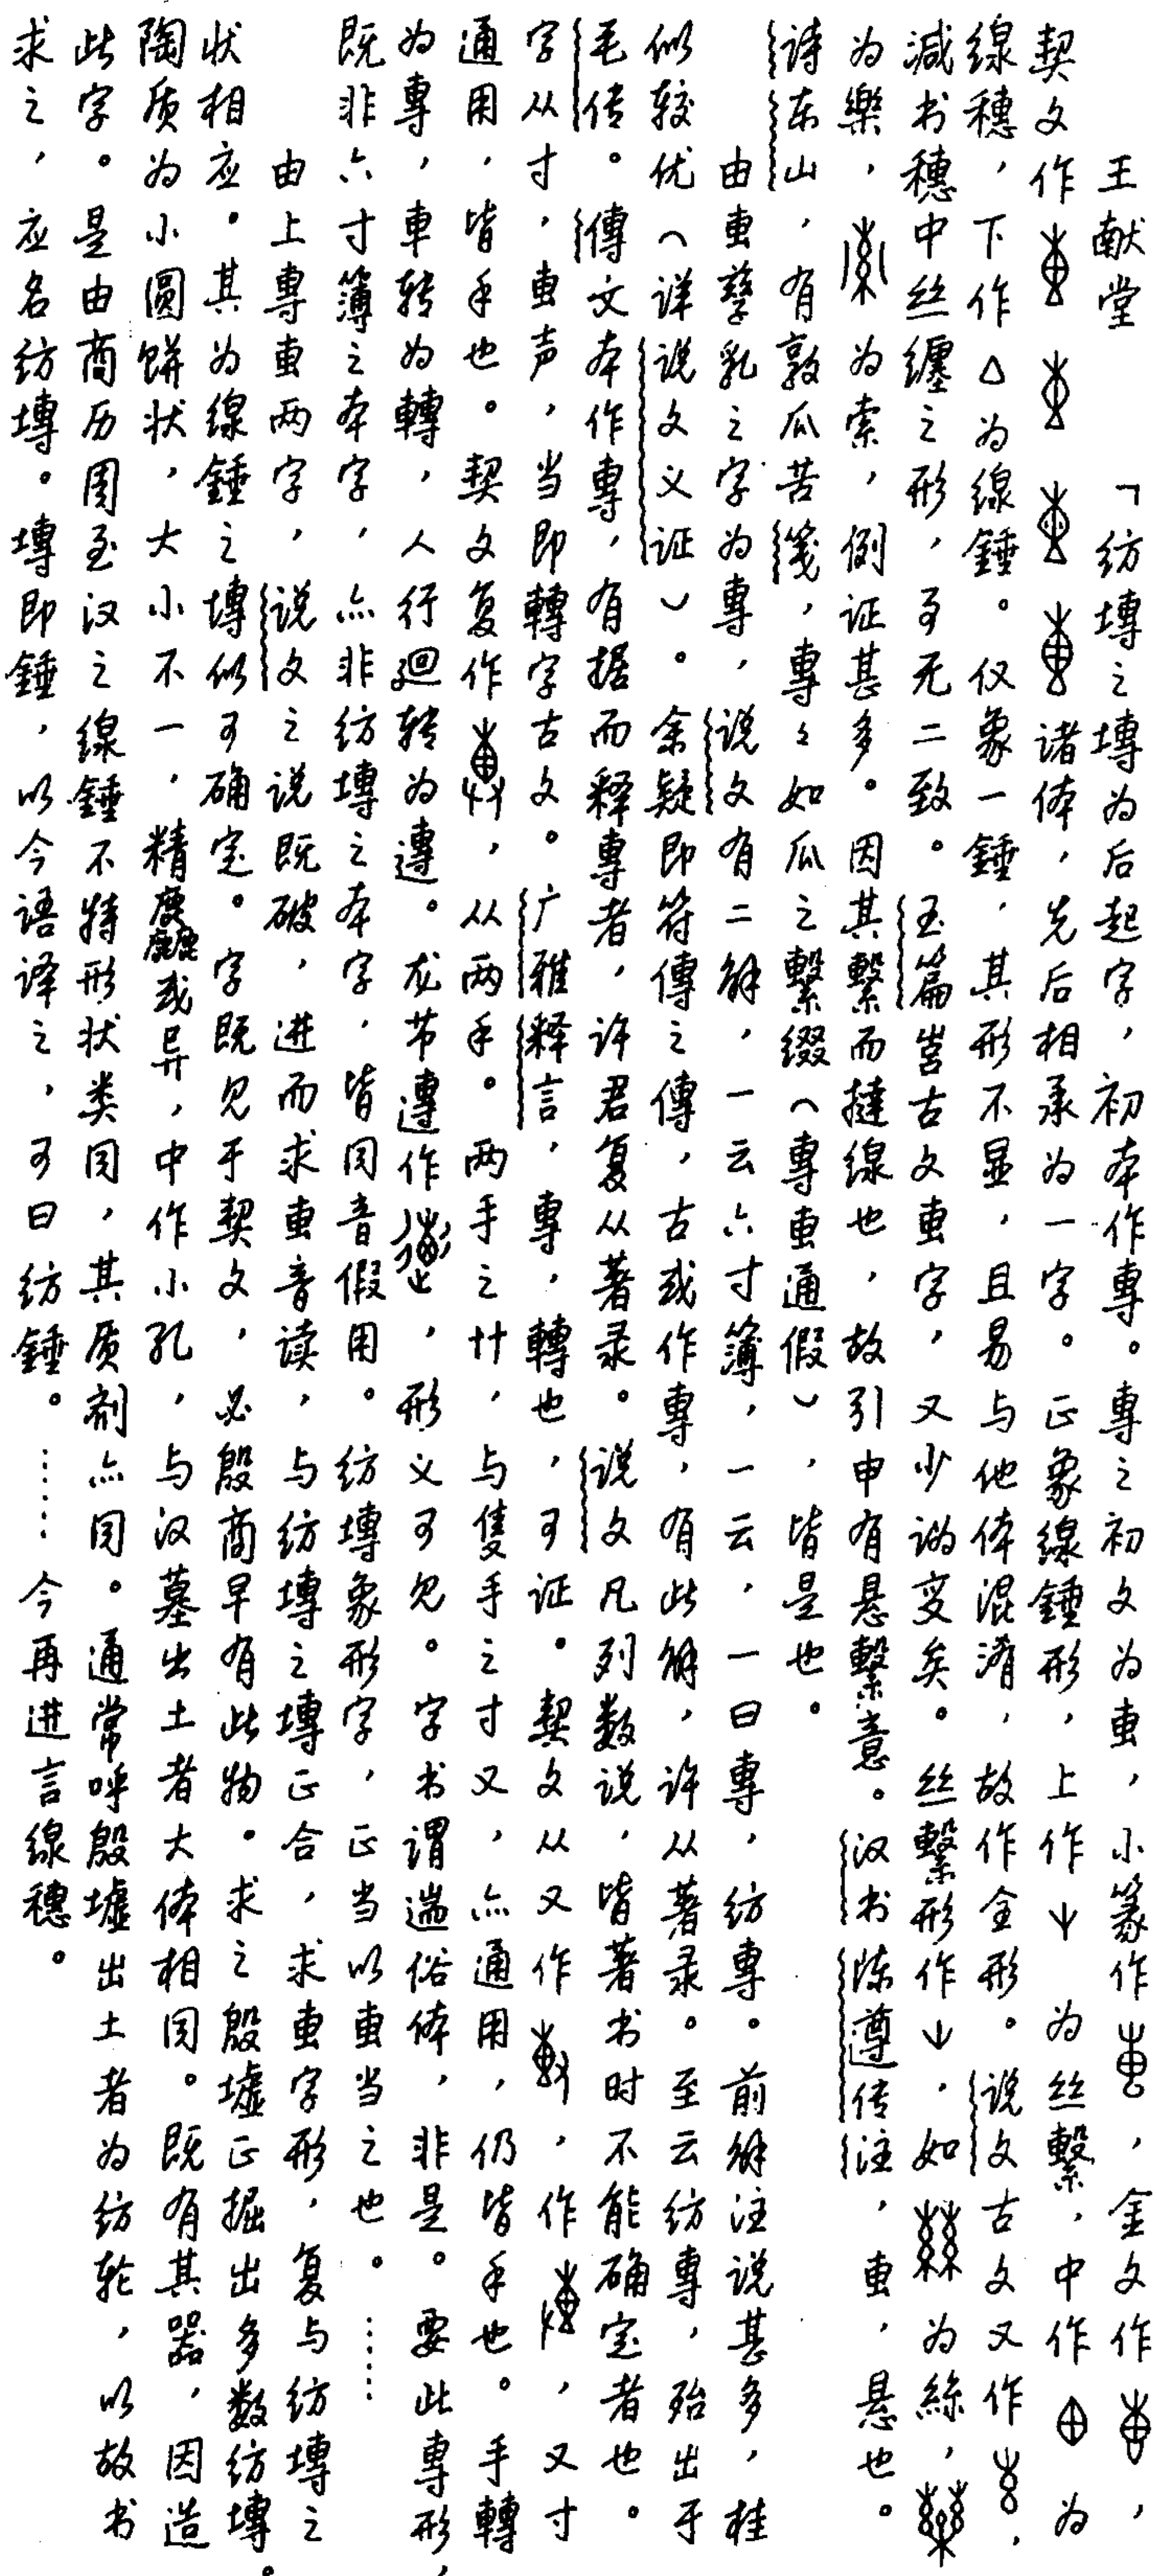 王献堂　「纺塼之塼为后起字，初本作專。專之初文为叀，小篆作，金文作，
契文作诸体，先后相承为一字。正象線錘形，上作为丝繫，中作为
線穗，下作△为線錘。仅象一錘，其形不显，且易与他体混淆，故作全形。说文古文又作，
减书穗中丝纏之形，可无二致。玉篇古文叀字，又少譌变矣。丝繫形作，如为絲，
为樂，为索，例证甚多。因其繫而撻線也，故引申有悬繫意。汉书陈遵传注，叀，悬也。
诗东山，有敦瓜苦箋，專々如瓜之繫缀（專叀通假），皆是也。
由叀孳乳之字为專，说文有二解，一云六寸簿，一云，一曰專，纺專。前解注说甚多，桂
似较优（详说文义证）。余疑即符傳之傳，古或作專，有此解，许从著录。至云纺專，殆出于
毛传。傳文本作專，有据而释專者，许君复从著录。说文凡列数说，皆著书时不能确定者也。
字从寸，叀声，当即轉字古文。广雅释言，專，轉也，可证。契文从又作，作，又寸
通用，皆手也。契文复作，从两手。两手之廾，与隻手之寸又，亦通用，仍皆手也。手轉
为專，車转为轉，人行廻转为遵。龙节遵作，形义可见。字书谓遄俗体，非是。要此專形，
既非六寸簿之本字，亦非纺塼之本字，皆同音假用。纺塼象形字，正当以叀当之也。……
由上專叀两字，说文之说既破，进而求叀音读，与纺塼之塼正合，求叀字形，复与纺塼之
状相应。其为線錘之塼似可确定。字既见于契文，必殷商早有此物。求之殷墟正掘出多数纺塼。
陶质为小圓餅状，大小不一，精麤或异，中作小孔，与汉墓出土者大体相同。既有其器，因造
此字。是由商历周至汉之線錘不特形状类同，其质剂亦同。通常呼殷墟出土者为纺轮，以故书
求之，应名纺塼。塼即錘，以今语译之，可曰纺錘。……今再进言線穗。